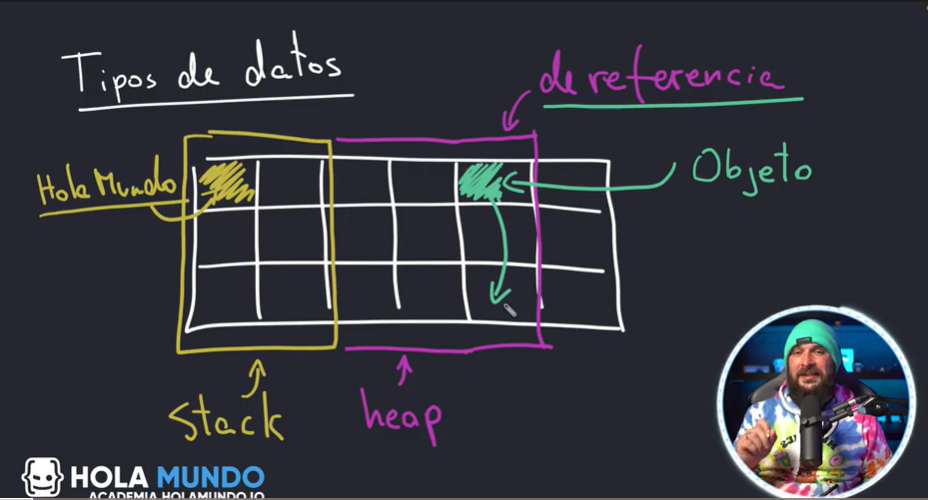 Tipos de datos
de referencia
Hola Mundo
Objeto
Stack
heap
HOLA MUNDO
ACADEMIA.HOLAMUNDO.IO